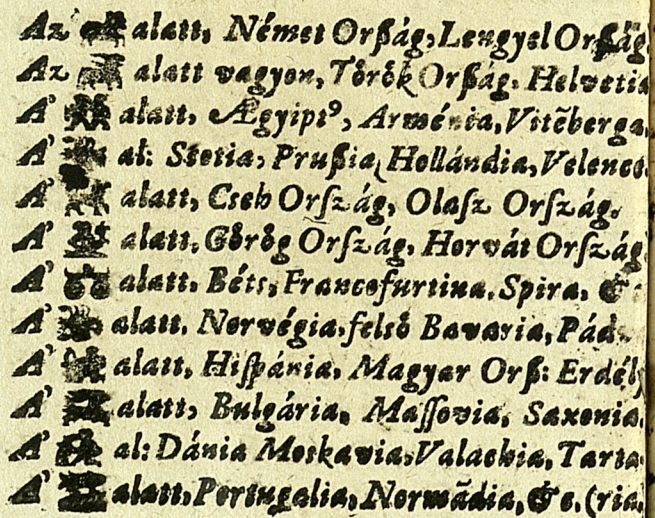 Az alatt, Német Orßág, Lengyel Orßág
Az alatt vagyon, Tőrők Orßág. Helvetia
A' alatt, Ægyiptꝰ, Arménia, Vitēberga,
A' al: Stetia, Prußia, Hollándia, Velence.
A' alatt, Cseh Orſzág, Olaſz Orſzág.
A' alatt, Gőrőg Orſzág, Horvát Orſzág
A' alatt, Béts, Francofurtina. Spira, &
A' alatt, Norvégia, felső Bavaria, Pád
A' alatt, Hiſpánia, Magyar Orß: Erdély
A' alatt, Bulgária, Maſſovia, Saxonia.
A' al: Dánia Moskavia, Valachia, Tarta
A' alatt, Portugalia, Normādia, & c. (ria,